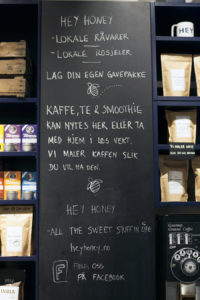 HEY HONEY
- LOKALE RÅVARER
- LOKALE ROSJELER
LAG DIN EGEN GAVEPAKKE
KAFFE, TE & SMOOTHIE
KAN NYTES HER ELLER TA
MED HJEM I LØS VEKT.
VI MALER KAFFEN SLIK
DU VIL HA DEN.
HEY HONEY
- ALL THE SWEET STUFF IN LIFE
heyhoney.no
F FINN OSS
PÅ FACEBOOK
HEY